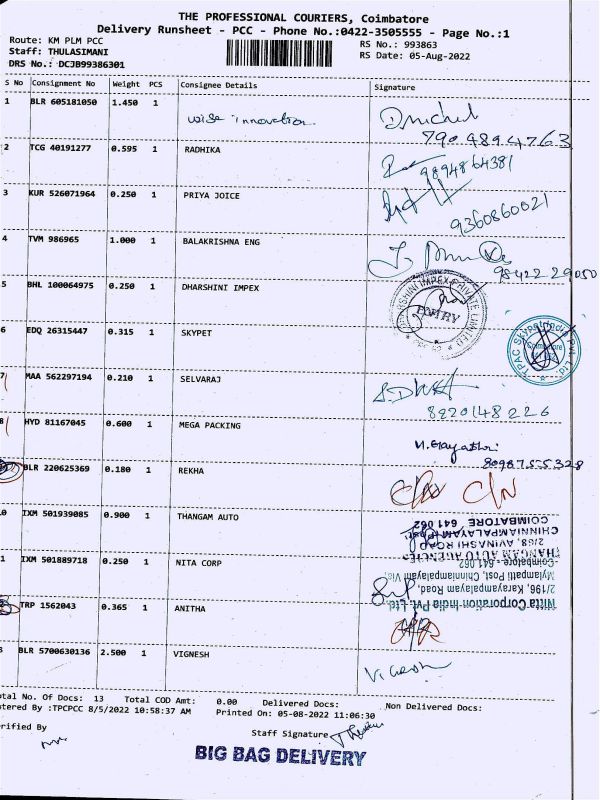 THE PROFESSIONAL COURIERS, Coimbatore
Delivery Runsheet - PCC - Phone No.:0422-3505555 - Page No.:1
Route: KM PLM PCC
RS No.: 993863
Staff: THULASIMANI
RS Date: 05-Aug-2022
DRS No.: DCJB99386301
S No Consignment No Weight PCS Consignee Details Signature
1 BLR 605181050 1.450 1 wise innovation
7904894763
2 TCG 40191277 0.595 1 RADHIKA
9894864381
3 KUR 526071964 0.250 1 PRIYA JOICE
9360860021
4 TVM 986965 1.000 1 BALAKRISHNA ENG
98422 29050
5 BHL 100064975 0.250 1 DHARSHINI IMPEX
DHARSHINI IMPEX PRIVATE LIMITED
ENTRY
6 EDQ 26315447 0.315 1 SKYPET
TPAC Skypet India Pvt. Ltd.
Coimbatore
7 MAA 562297194 0.210 1 SELVARAJ
8220148226
8 HYD 81167045 0.600 1 MEGA PACKING
80987 55328
BLR 220625369 0.180 1 REKHA
0 IXM 501939085 0.900 1 THANGAM AUTO
THANGAM AUTO AGENCIES
2/68, AVINASHI ROAD
CHINNIAMPALAYAM (Post)
COIMBATORE 641 062
1 IXM 501889718 0.250 1 NITA CORP
Nitta Corporation India Pvt. Ltd.
2/196, Karayampalayam Road,
Mylampatti Post, Chinniampalayam Via,
Coimbatore - 641 062
TRP 1562043 0.365 1 ANITHA
3 BLR 5700630136 2.500 1 VIGNESH
Vignesh
otal No. Of Docs: 13 Total COD Amt: 0.00 Delivered Docs: Non Delivered Docs:
ntered By :TPCPCC 8/5/2022 10:58:37 AM Printed On: 05-08-2022 11:06:30
erified By
Staff Signature
BIG BAG DELIVERY